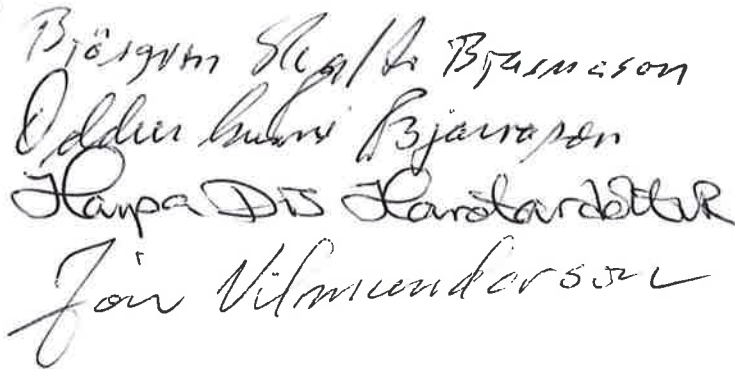 Björgvin Skafti Bjarnason
Oddur Bjarnason
Harpa Dís Harðardóttir
Jón Vilmundarson